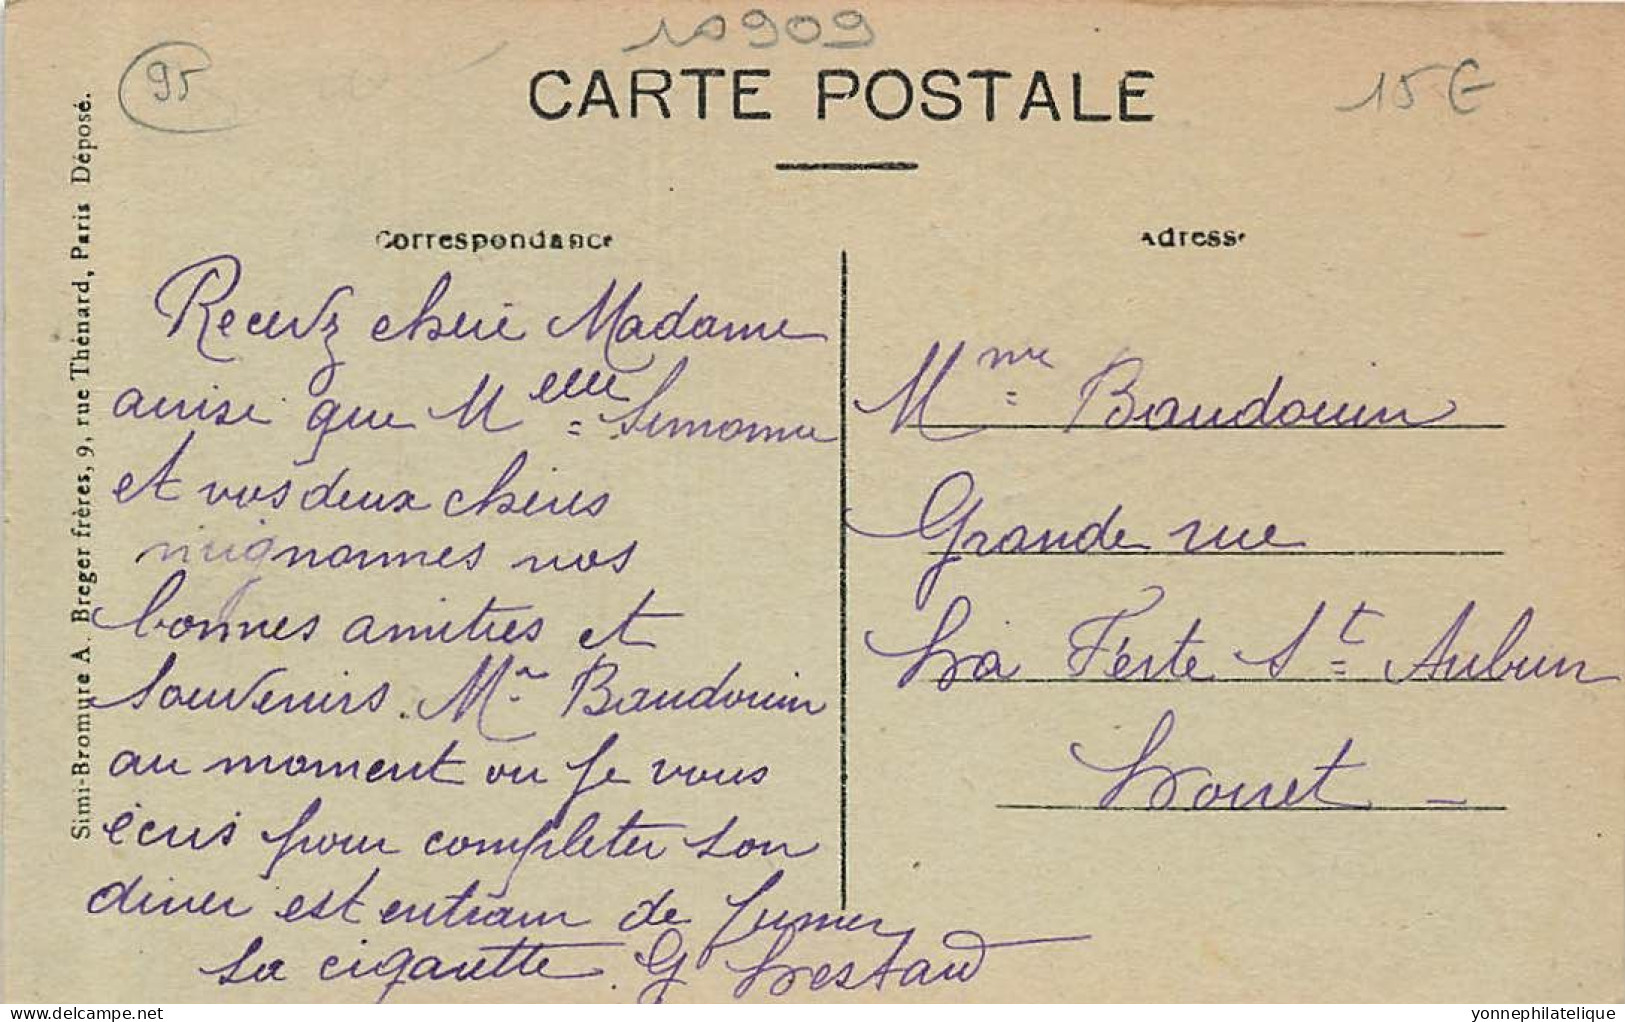 10909
95
CARTE POSTALE
15 €
Simi-Bromure A. Breger frères, 9, rue Thénard, Paris Déposé.
Correspondance
Adresse
Recevez chère Madame
ainsi que Melle Simonne
et vos deux chères
mignonnes nos
bonnes amitiés et
souvenirs. Mr Baudouin
au moment ou je vous
écris pour completer son
diner est entrain de fumer
la cigarette. G
Mme Baudouin
Grande rue
La Ferte St Aubin
Loiret
delcampe.net
yonnephilatelique